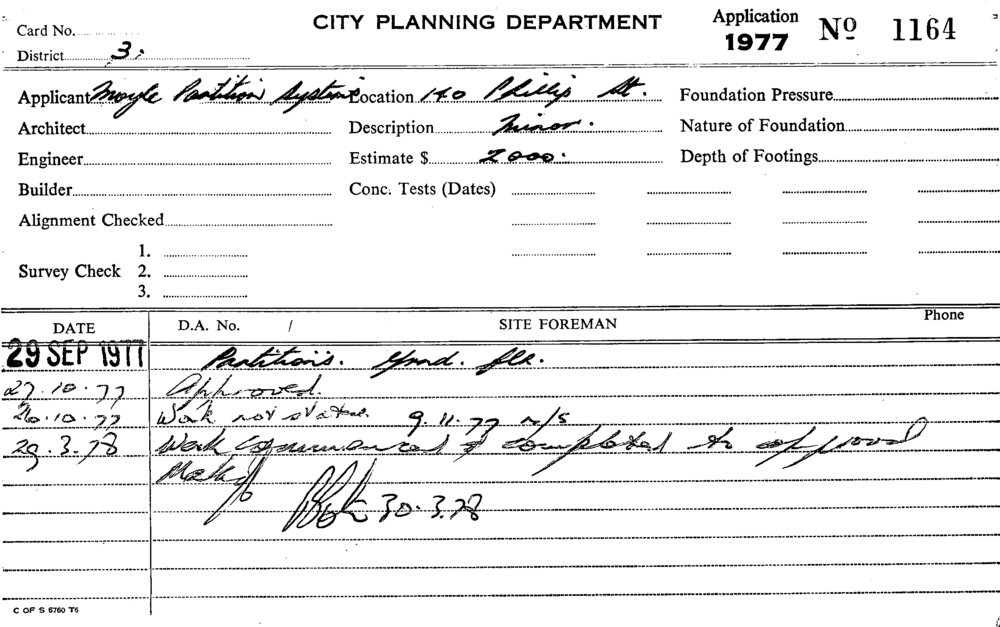 Card No.
CITY PLANNING DEPARTMENT
Application
1977
Nº 1164
District 3.
Applicant Moyle Partition Systems Location 140 Phillip St. Foundation Pressure
Architect Description Minor. Nature of Foundation
Engineer Estimate $ 2000. Depth of Footings
Builder Conc. Tests (Dates)
Alignment Checked
1.
Survey Check 2.
3.
DATE D.A. No. / SITE FOREMAN Phone
29 SEP 1977 Partitions. Grnd. Flr.
27.10.77 Approved.
26.10.77 Work not started. 9.11.77 N/S
29.3.78 Work commenced & completed to approval
30.3.78
C OF S 6760 T6